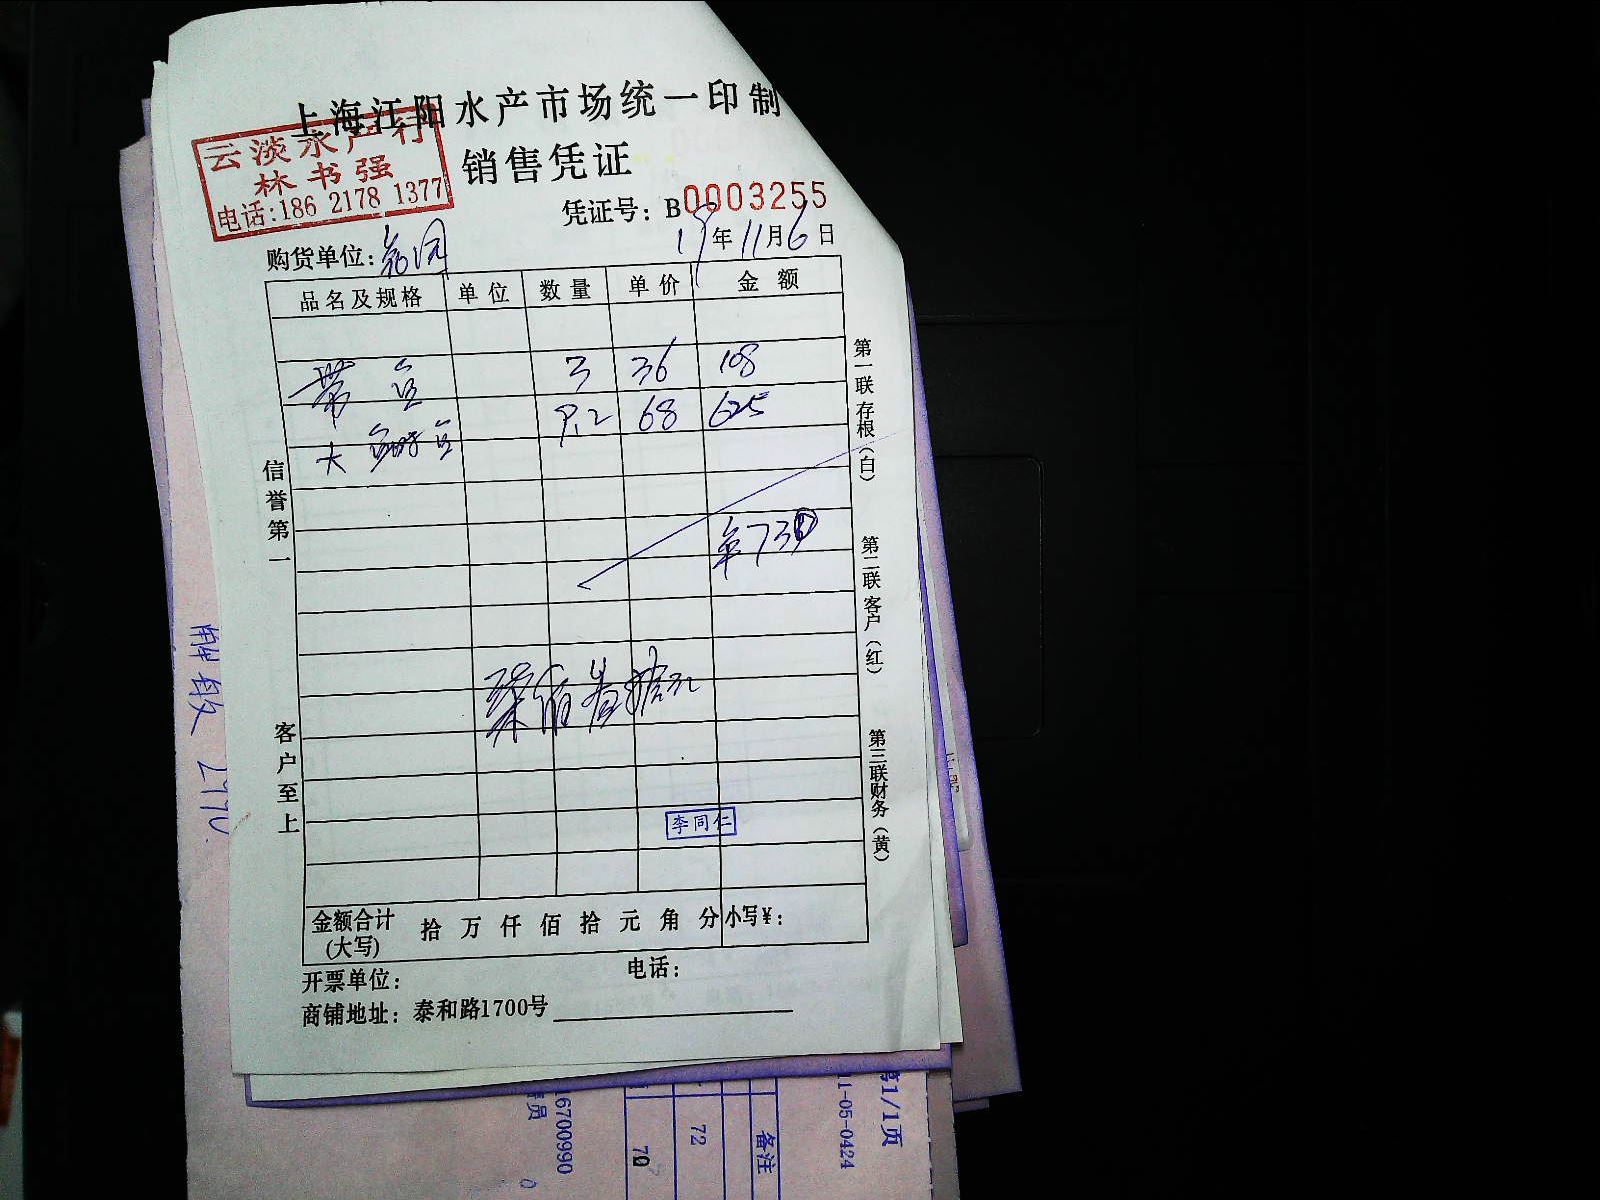 上海江阳水产市场统一印制
云淡水产行
林书强
电话:186 2178 1377
销售凭证
凭证号：B0003255
19年11月6日
购货单位：
品名及规格 单位 数量 单价 金额
带鱼 3 36 108
大 鱼 9.2 68 625
730
李同仁
金额合计(大写) 拾 万 仟 佰 拾 元 角 分 小写¥：
开票单位： 电话：
商铺地址：泰和路1700号
信誉第一
客户至上
第一联存根（白）
第二联客户（红）
第三联财务（黄）
16700990
员
70
72
备注
11-05-0424
1/1页